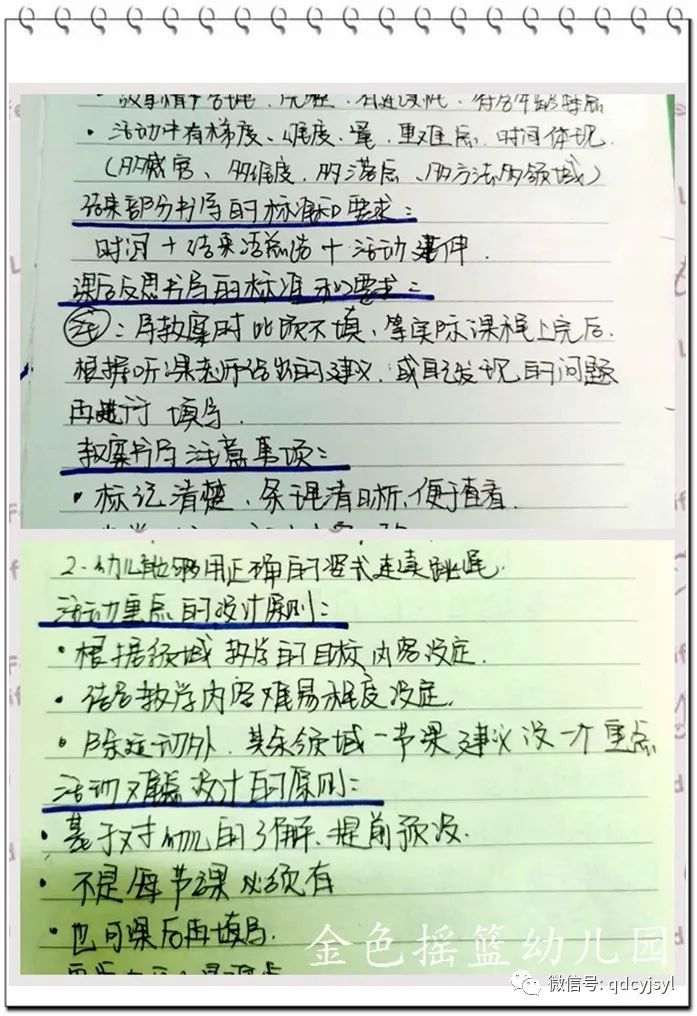 • 活动中有梯度、难度、量、重难点、时间体现.
(多感官、多维度、多层次、多方法多领域)
结束部分书写的标准和要求:
时间 + 结束语总结 + 活动延伸.
课后反思书写的标准和要求:
注: 写教案时此项不填, 等实际课程上完后.
根据听课老师给出的建议, 或自己发现的问题
再进行 填写.
教案书写注意事项:
• 标记清楚, 条理清晰, 便于查看.
2. 幼儿能够用正确的姿式连续跳绳.
活动重点的设计原则:
• 根据领域教学的目标内容设定.
• 结合教学内容难易程度设定.
• 除运动外, 其余领域一节课建议设一个重点
活动难点设计的原则:
• 基于对幼儿的了解, 提前预设.
• 不是每节课必须有
• 也可课后再填写.
金色摇篮幼儿园
微信号: qdcyjsyl